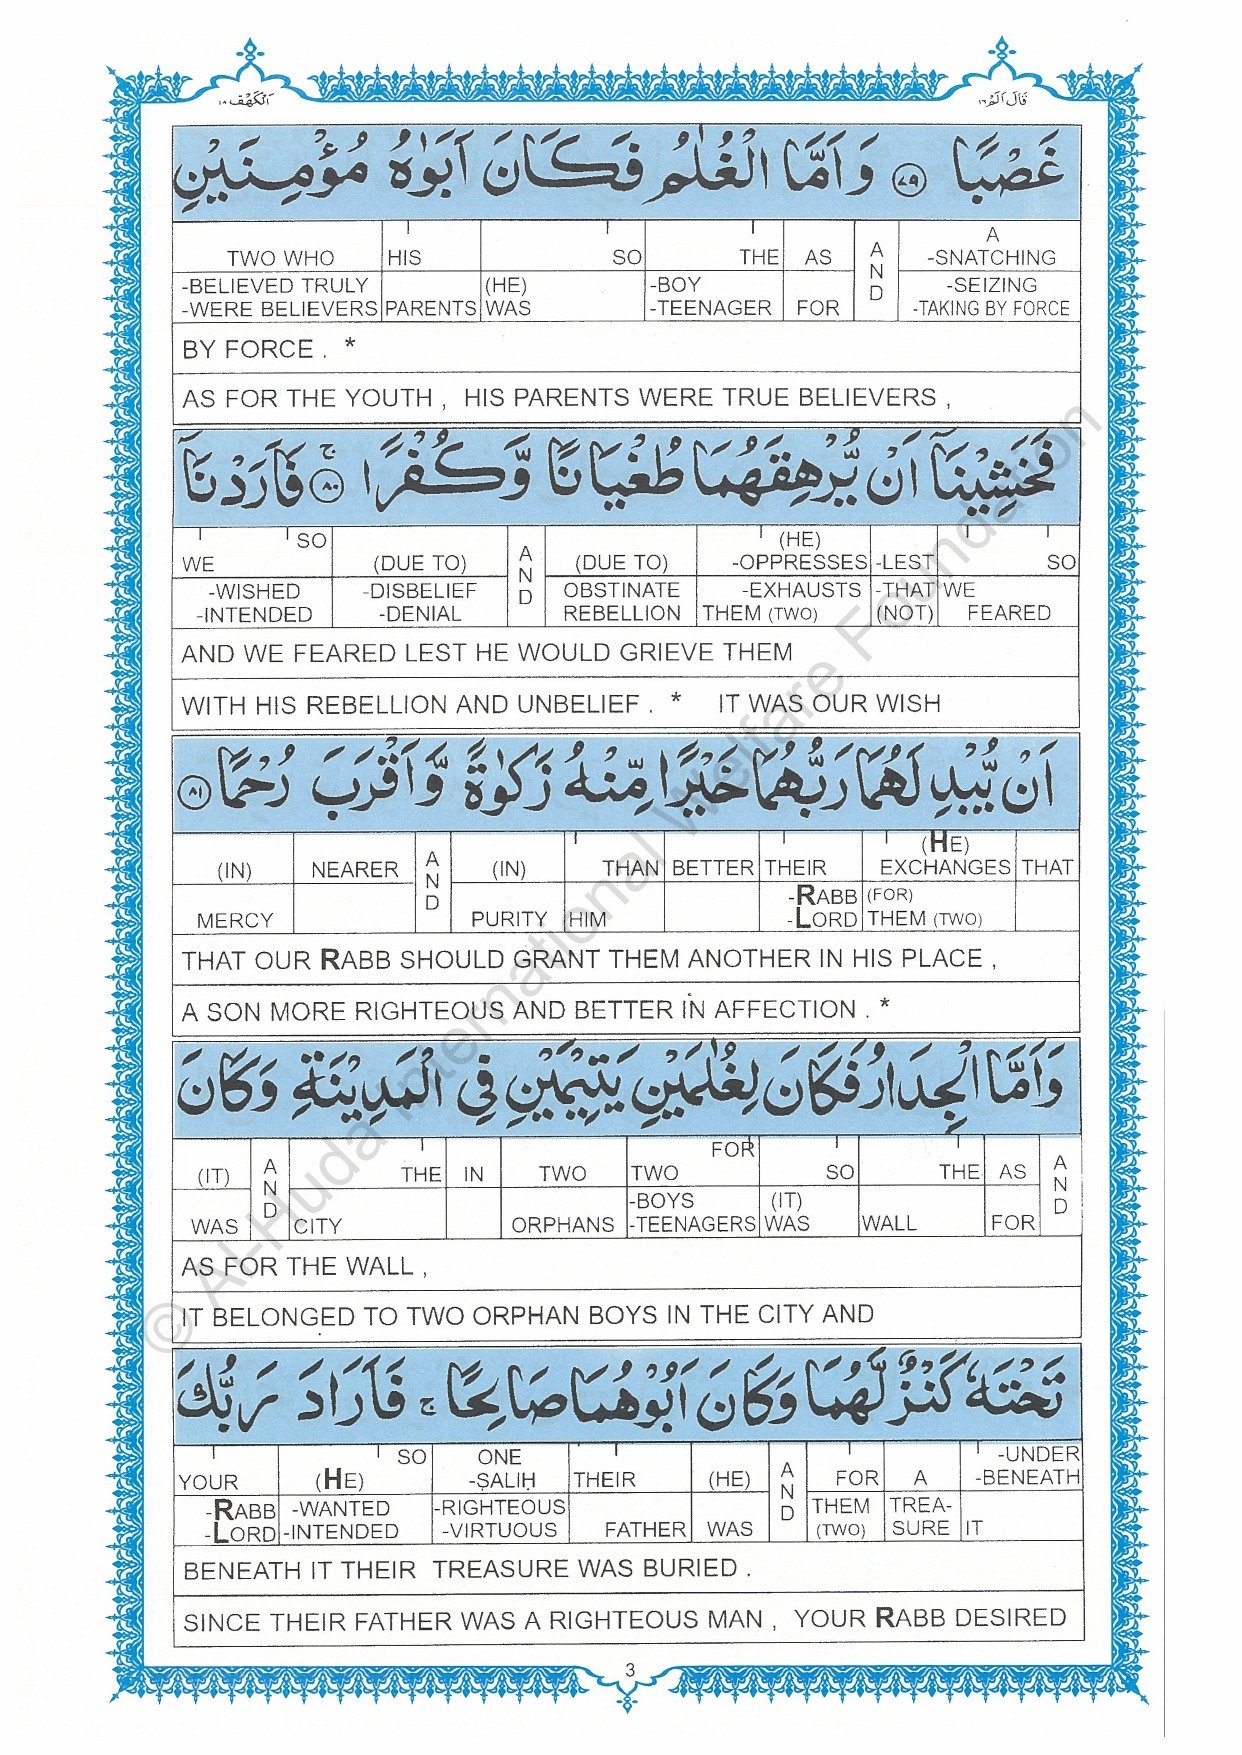 اَلْكَهْف ١٨
قَالَ اَلَمْ ١٦
غَصْبًا ٧٩ وَ اَمَّا الْغُلٰمُ فَكَانَ اَبَوٰهُ مُؤْمِنَيْنِ
A
TWO WHO HIS SO THE AS AND -SNATCHING
-BELIEVED TRULY (HE) -BOY -SEIZING
-WERE BELIEVERS PARENTS WAS -TEENAGER FOR -TAKING BY FORCE
BY FORCE . *
AS FOR THE YOUTH , HIS PARENTS WERE TRUE BELIEVERS ,
فَخَشِيْنَاۤ اَنْ يُّرْهِقَهُمَا طُغْيَانًا وَّ كُفْرًا ۚ ٨٠ فَاَرَدْنَاۤ
SO (HE)
WE (DUE TO) AND (DUE TO) -OPPRESSES -LEST SO
-WISHED -DISBELIEF OBSTINATE -EXHAUSTS -THAT WE
-INTENDED -DENIAL REBELLION THEM (TWO) (NOT) FEARED
AND WE FEARED LEST HE WOULD GRIEVE THEM
WITH HIS REBELLION AND UNBELIEF . * IT WAS OUR WISH
اَنْ يُّبْدِ لَهُمَا رَبُّهُمَا خَيْرًا مِّنْهُ زَكٰوةً وَّ اَقْرَبَ رُحْمًا ٨١
(HE)
(IN) NEARER AND (IN) THAN BETTER THEIR EXCHANGES THAT
-RABB (FOR)
MERCY PURITY HIM -LORD THEM (TWO)
THAT OUR RABB SHOULD GRANT THEM ANOTHER IN HIS PLACE ,
A SON MORE RIGHTEOUS AND BETTER IN AFFECTION . *
وَ اَمَّا الْجِدَارُ فَكَانَ لِغُلٰمَيْنِ يَتِيْمَيْنِ فِي الْمَدِيْنَةِ وَ كَانَ
FOR
(IT) AND THE IN TWO TWO SO THE AS AND
-BOYS (IT)
WAS CITY ORPHANS -TEENAGERS WAS WALL FOR
AS FOR THE WALL ,
IT BELONGED TO TWO ORPHAN BOYS IN THE CITY AND
تَحْتَهٗ كَنْزٌ لَّهُمَا وَ كَانَ اَبُوْهُمَا صَالِحًا ۚ فَاَرَادَ رَبُّكَ
SO ONE -UNDER
YOUR (HE) -ṢALIḤ THEIR (HE) AND FOR A -BENEATH
-RABB -WANTED -RIGHTEOUS THEM TREA-
-LORD -INTENDED -VIRTUOUS FATHER WAS (TWO) SURE IT
BENEATH IT THEIR TREASURE WAS BURIED .
SINCE THEIR FATHER WAS A RIGHTEOUS MAN , YOUR RABB DESIRED
3
© Al-Huda International Welfare Foundation